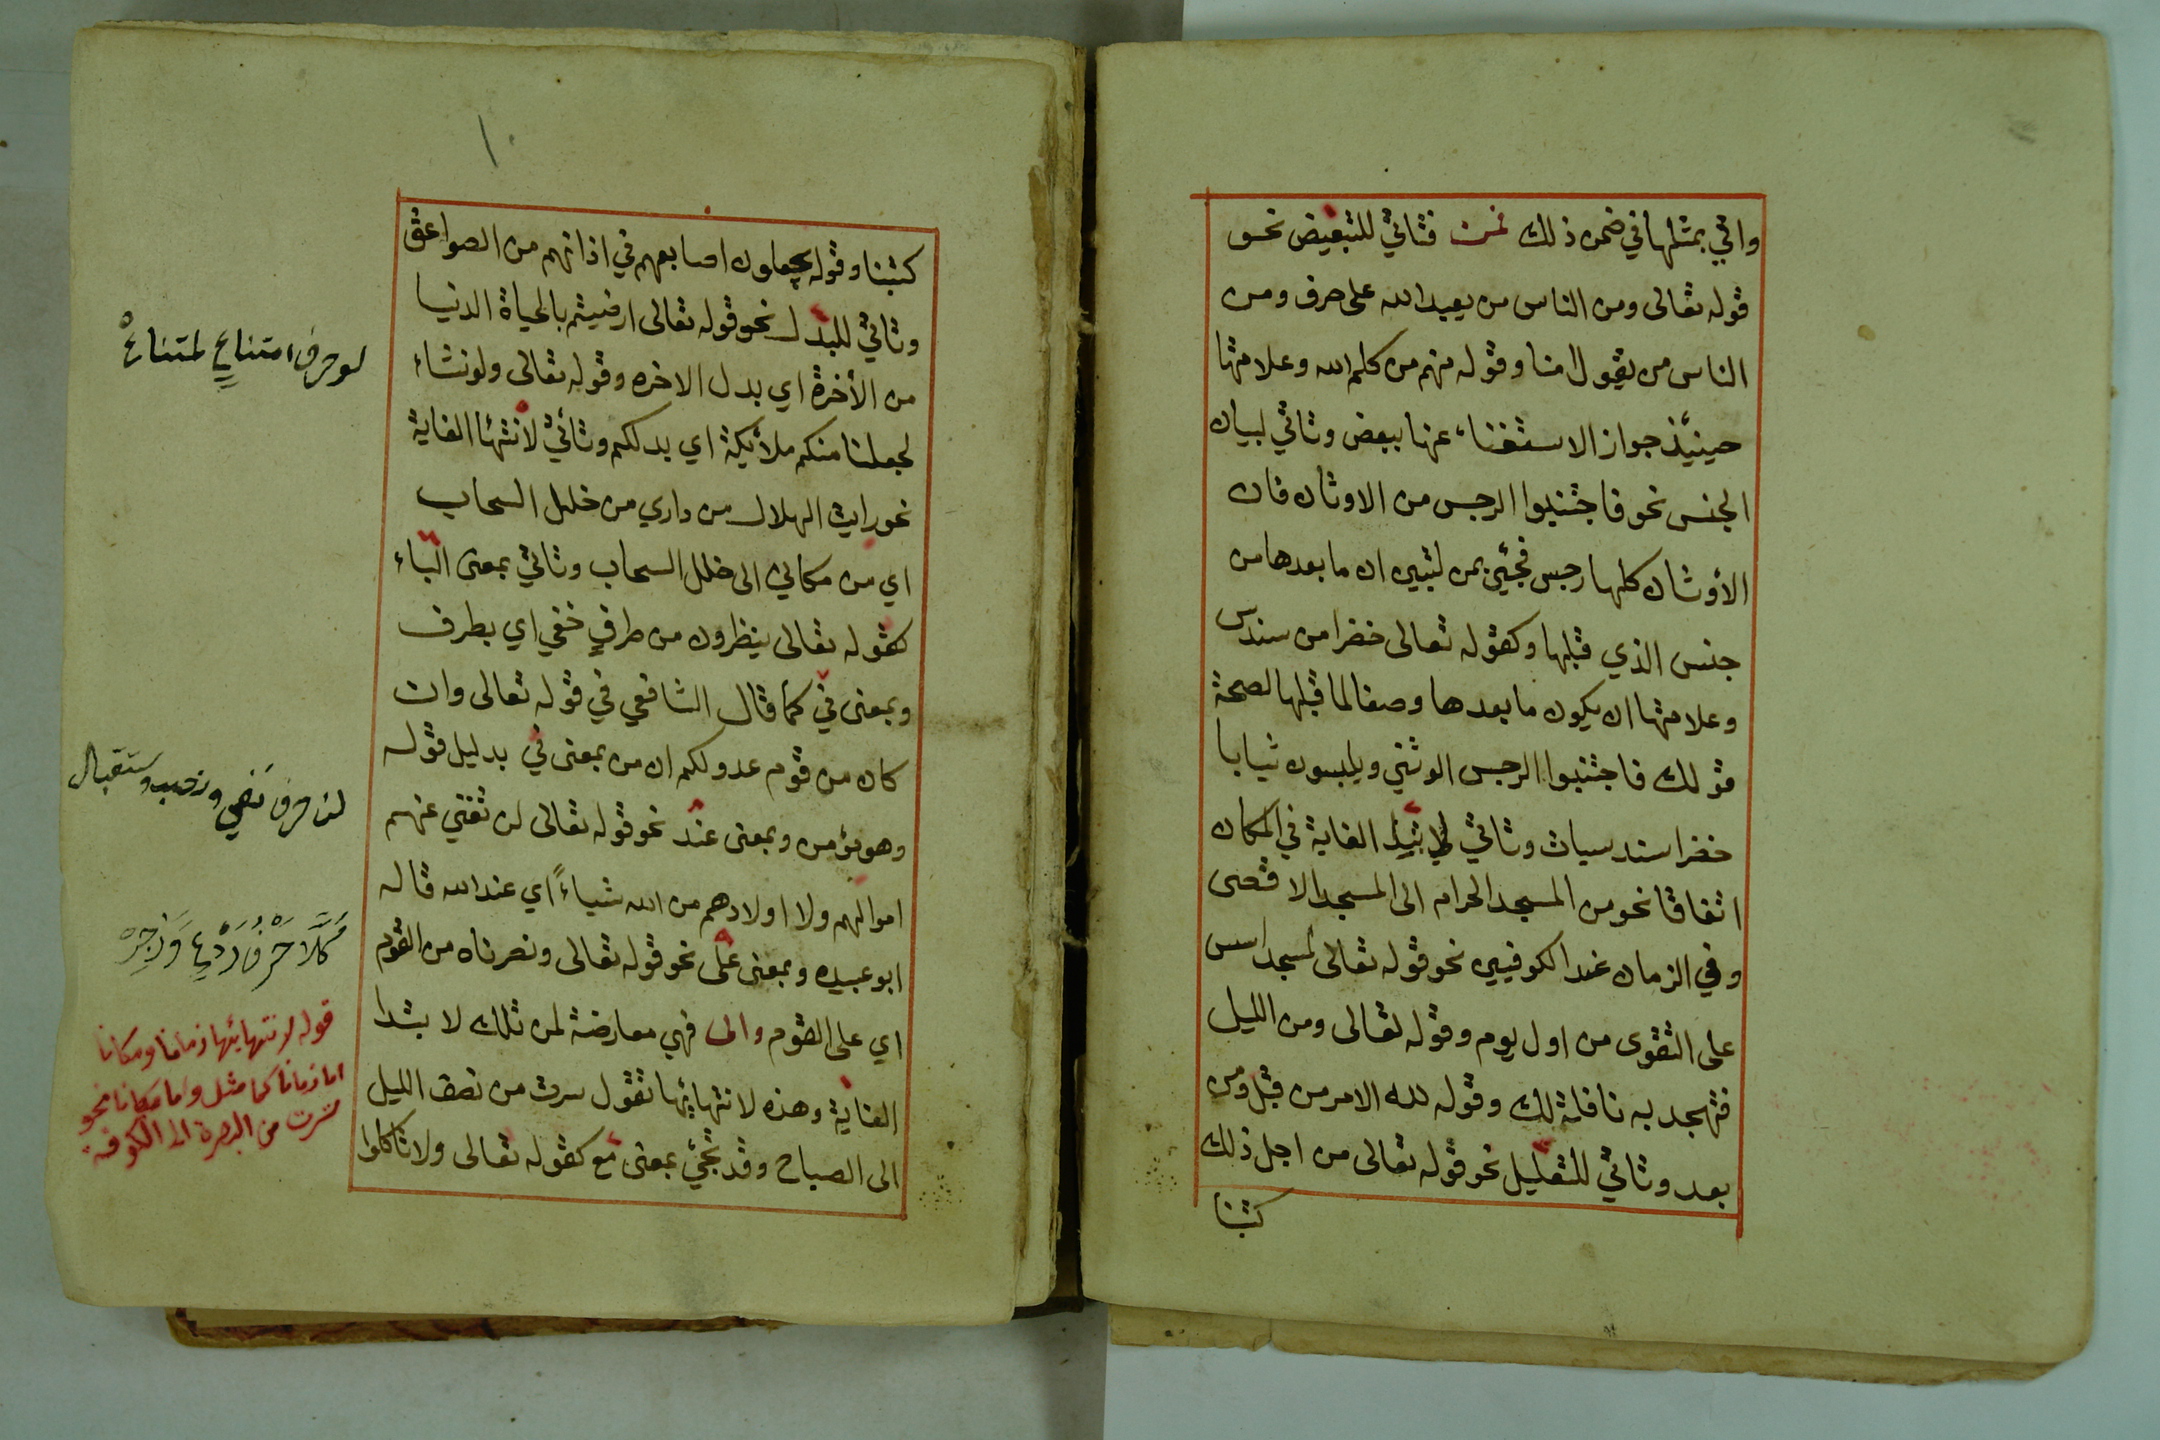 واتي بمثلها في ضمن ذلك فمن فتاتي للتبعيض نحو
قوله تعالى ومن الناس من يعبد الله على حرف ومن
الناس من يقول امنا وقوله منهم من كلم الله وعلامتها
حينئذ جواز الاستغناء عنها ببعض وتاتي لبيان
الجنس نحو فاجتنبوا الرجس من الاوثان فان
الأوثان كلها رجس فجيئ بمن لتبين ان ما بعدها من
جنس الذي قبلها وكقوله تعالى خضرا من سندس
وعلامتها ان يكون ما بعدها وصفا لما قبلها لصحة
قولك فاجتنبوا الرجس الوثني ويلبسون ثيابا
خضرا سندسيات وتاتي الغاية في المكان
اتفاقا نحو من المسجد الحرام الى المسجد الاقصى
وفي الزمان عند الكوفيين نحو قوله تعالى لمسجد اسس
على التقوى من اول يوم وقوله تعالى ومن الليل
فتهجد به نافلة لك وقوله لله الامر من قبل ومن
بعد وتاتي للتعليل نحو قوله تعالى من اجل ذلك
كتبنا
١٠
كتبنا وقوله يجعلون اصابعهم في اذانهم من الصواعق
وتاتي للبدل نحو قوله تعالى ارضيتم بالحياة الدنيا
من الأخرة اي بدل الاخره وقوله تعالى ولو نشاء
لجعلنا منكم ملائيكة اي بدلكم وتأتي لأنتهاء الغاية
نحو رايت الهلال من داري من خلل السحاب
اي من مكاني الى خلل السحاب وتاتي بمعنى الباء
كقوله تعالى ينظرون من طرفٍ خفي اي بطرف
وبمعنى في كما قال الشافعي في قوله تعالى وان
كان من قوم عدو لكم ان من بمعنى في بدليل قوله
وهو مؤمن وبمعنى عند نحو قوله تعالى لن تغني عنهم
اموالهم ولا اولادهم من الله شياءً اي عند الله قاله
ابو عبيده وبمعنى على نحو قوله تعالى ونصرناه من القوم
اي على القوم والى فهي معارضة لمن تلك لابتدا
الغاية وهذه لانتهائها تقول سرت من نصف الليل
الى الصباح وقد تجيئ بمعنى مع كقوله تعالى ولا تاكلوا
لو حرف امتناعٍ لمتناعْ
لن حرف نفي ونصب وستقبال
كَلَّا حَرْفُ رَدْعٍ وَزَجِرْ
قوله لانتهائها زمانا ومكانا
اما زمانا كما مثل واما مكانا نحو
سرت من البصرة الى الكوفه